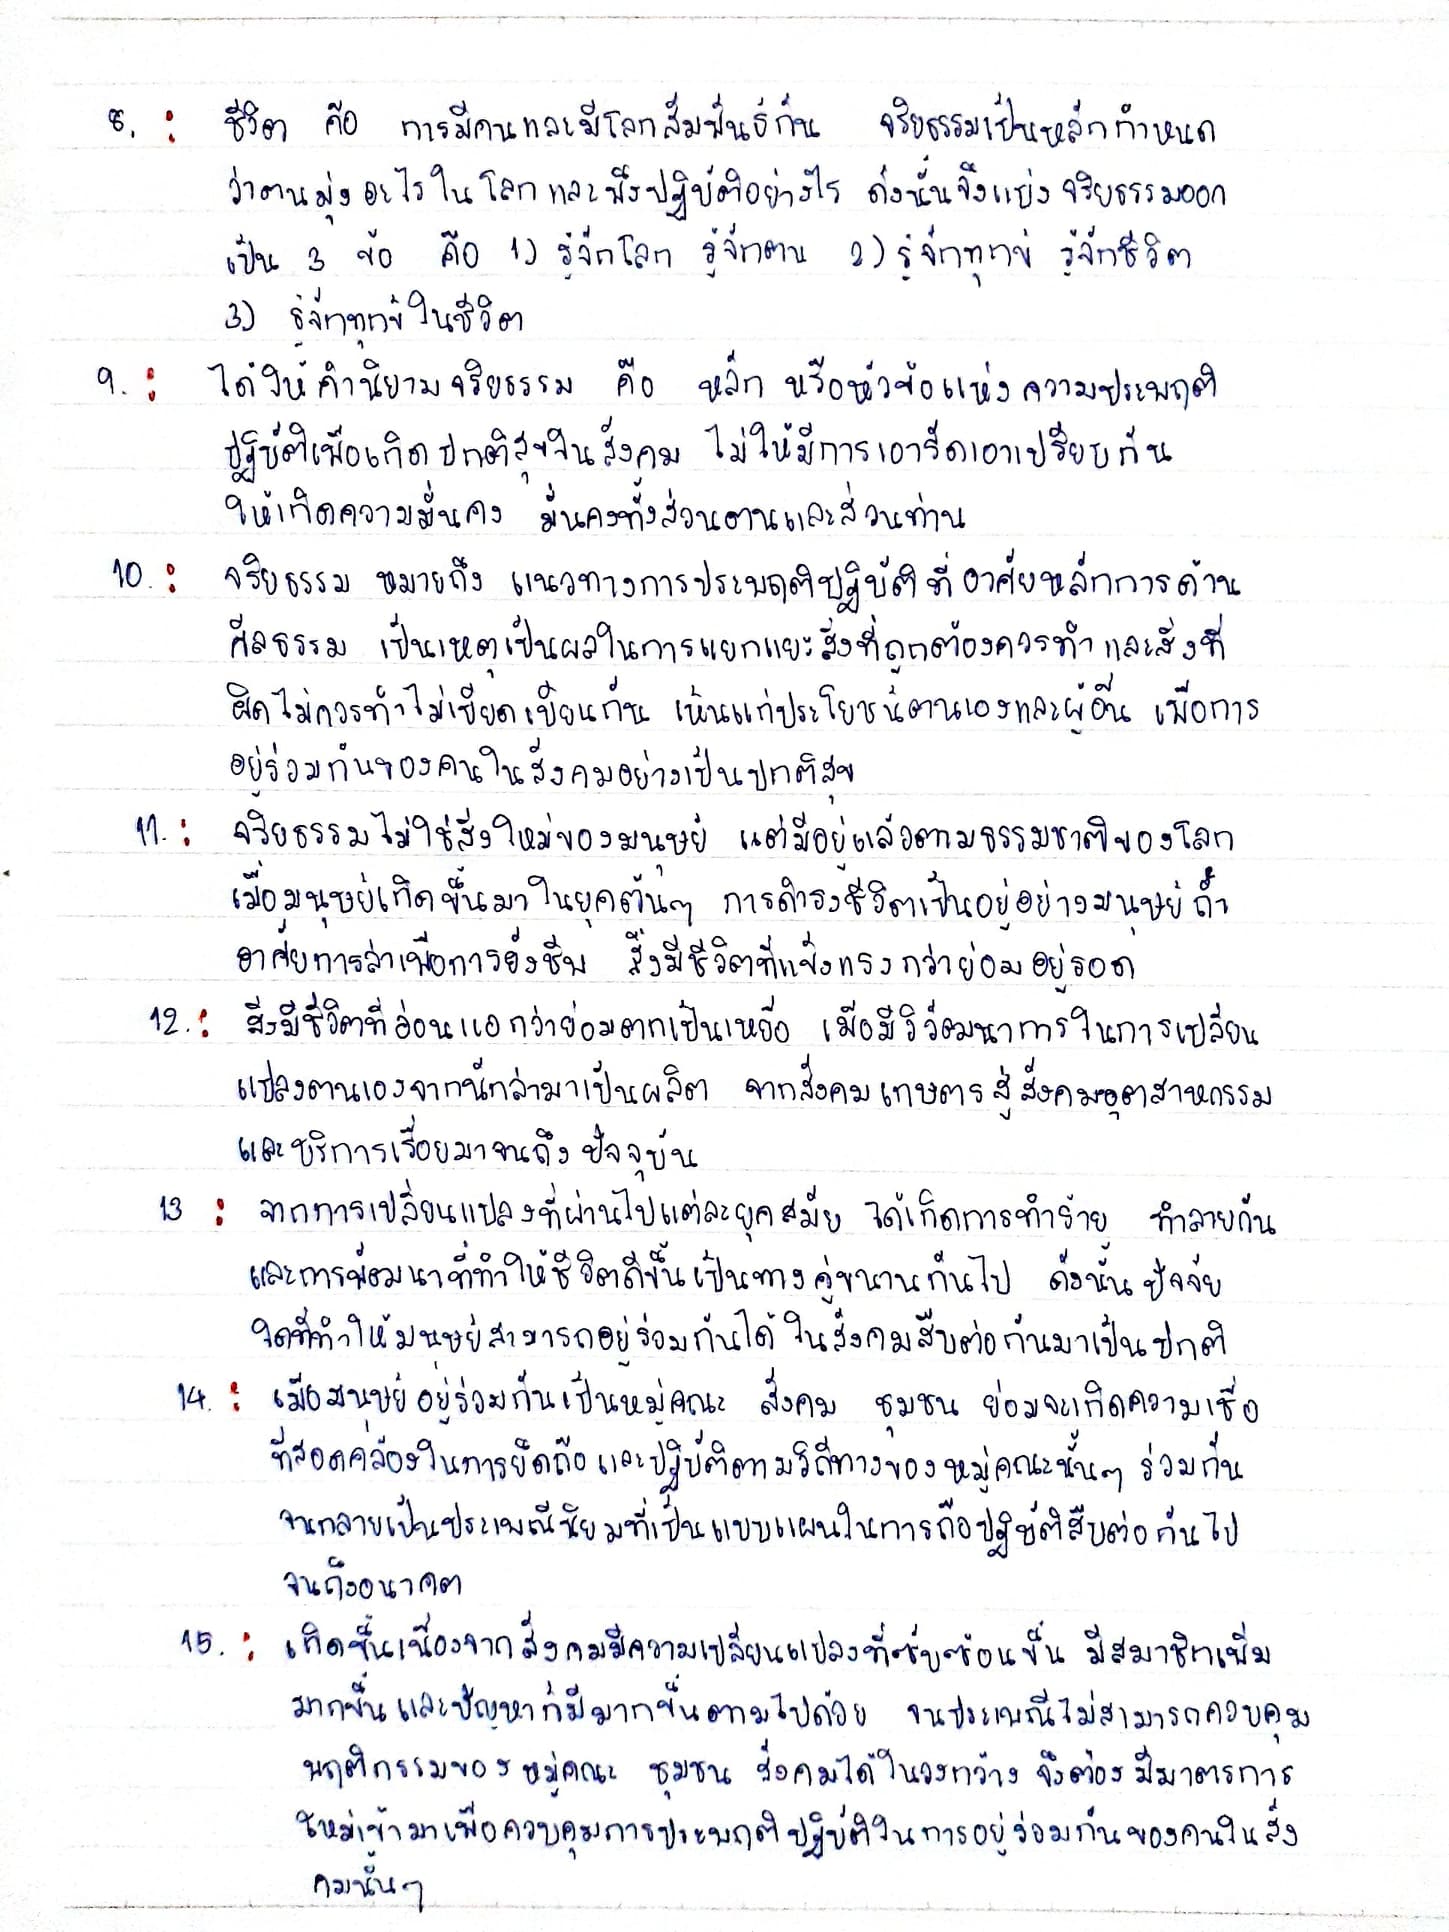 8. : ชีวิต คือ การมีตนและมีโลกสัมพันธ์กัน จริยธรรมเป็นหลักกำหนด
ว่าตนมุ่งอะไรในโลกและพึงปฏิบัติอย่างไร ดังนั้นจึงแบ่งจริยธรรมออก
เป็น 3 ข้อ คือ 1) รู้จักโลก รู้จักตน 2) รู้จักทุกข์ รู้จักชีวิต
3) รู้จักทุกข์ในชีวิต
9. : ได้ให้คำนิยามจริยธรรม คือ หลัก หรือหัวข้อแห่งความประพฤติ
ปฏิบัติเพื่อเกิดปกติสุขในสังคม ไม่ให้มีการเอารัดเอาเปรียบกัน
ให้เกิดความมั่นคง มั่นคงทั้งส่วนตนและส่วนท่าน
10. : จริยธรรม หมายถึง แนวทางการประพฤติปฏิบัติที่อาศัยหลักการด้าน
ศีลธรรม เป็นเหตุเป็นผลในการแยกแยะสิ่งที่ถูกต้องควรทำและสิ่งที่
ผิดไม่ควรทำไม่เบียดเบียนกัน เห็นแก่ประโยชน์ตนเองและผู้อื่น เพื่อการ
อยู่ร่วมกันของคนในสังคมอย่างเป็นปกติสุข
11. : จริยธรรมไม่ใช่สิ่งใหม่ของมนุษย์ แต่มีอยู่แล้วตามธรรมชาติของโลก
เมื่อมนุษย์เกิดขึ้นมาในยุคต้นๆ การดำรงชีวิตเป็นอยู่อย่างมนุษย์ถ้ำ
อาศัยการล่าเพื่อการยังชีพ สิ่งมีชีวิตที่แข็งแรงกว่าย่อมอยู่รอด
12. : สิ่งมีชีวิตที่อ่อนแอกว่าย่อมตกเป็นเหยื่อ เมื่อมีวิวัฒนาการในการเปลี่ยน
แปลงตนเองจากนักล่ามาเป็นผลิต จากสังคมเกษตรสู่สังคมอุตสาหกรรม
และบริการเรื่อยมาจนถึงปัจจุบัน
13 : จากการเปลี่ยนแปลงที่ผ่านไปแต่ละยุคสมัย ได้เกิดการทำร้าย ทำลายกัน
และการพัฒนาที่ทำให้ชีวิตดีขึ้นเป็นทางคู่ขนานกันไป ดังนั้นปัจจัย
ใดที่ทำให้มนุษย์สามารถอยู่ร่วมกันได้ในสังคมสืบต่อกันมาเป็นปกติ
14. : เมื่อมนุษย์อยู่ร่วมกันเป็นหมู่คณะ สังคม ชุมชน ย่อมจะเกิดความเชื่อ
ที่สอดคล้องในการยึดถือและปฏิบัติตามวิถีทางของหมู่คณะนั้นๆ ร่วมกัน
จนกลายเป็นประเพณีนิยมที่เป็นแบบแผนในการถือปฏิบัติสืบต่อกันไป
จนถึงอนาคต
15. : เกิดขึ้นเนื่องจากสังคมมีความเปลี่ยนแปลงที่ซับซ้อนขึ้น มีสมาชิกเพิ่ม
มากขึ้นและปัญหาก็มีมากขึ้นตามไปด้วย จนประเพณีไม่สามารถควบคุม
พฤติกรรมของหมู่คณะ ชุมชน สังคมได้ในวงกว้าง จึงต้องมีมาตรการ
ใหม่เข้ามาเพื่อควบคุมการประพฤติปฏิบัติในการอยู่ร่วมกันของคนในสัง
คมนั้นๆ